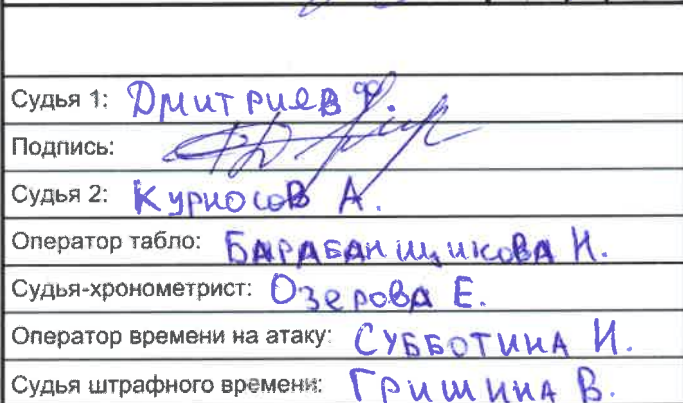 Судья 1: Дмитриев Ф.
Подпись:
Судья 2: Курносов А.
Оператор табло: БАРАБАНщикова Н.
Судья-хронометрист: Озерова Е.
Оператор времени на атаку: СУББОТИНА И.
Судья штрафного времени: ГРИШИНА В.